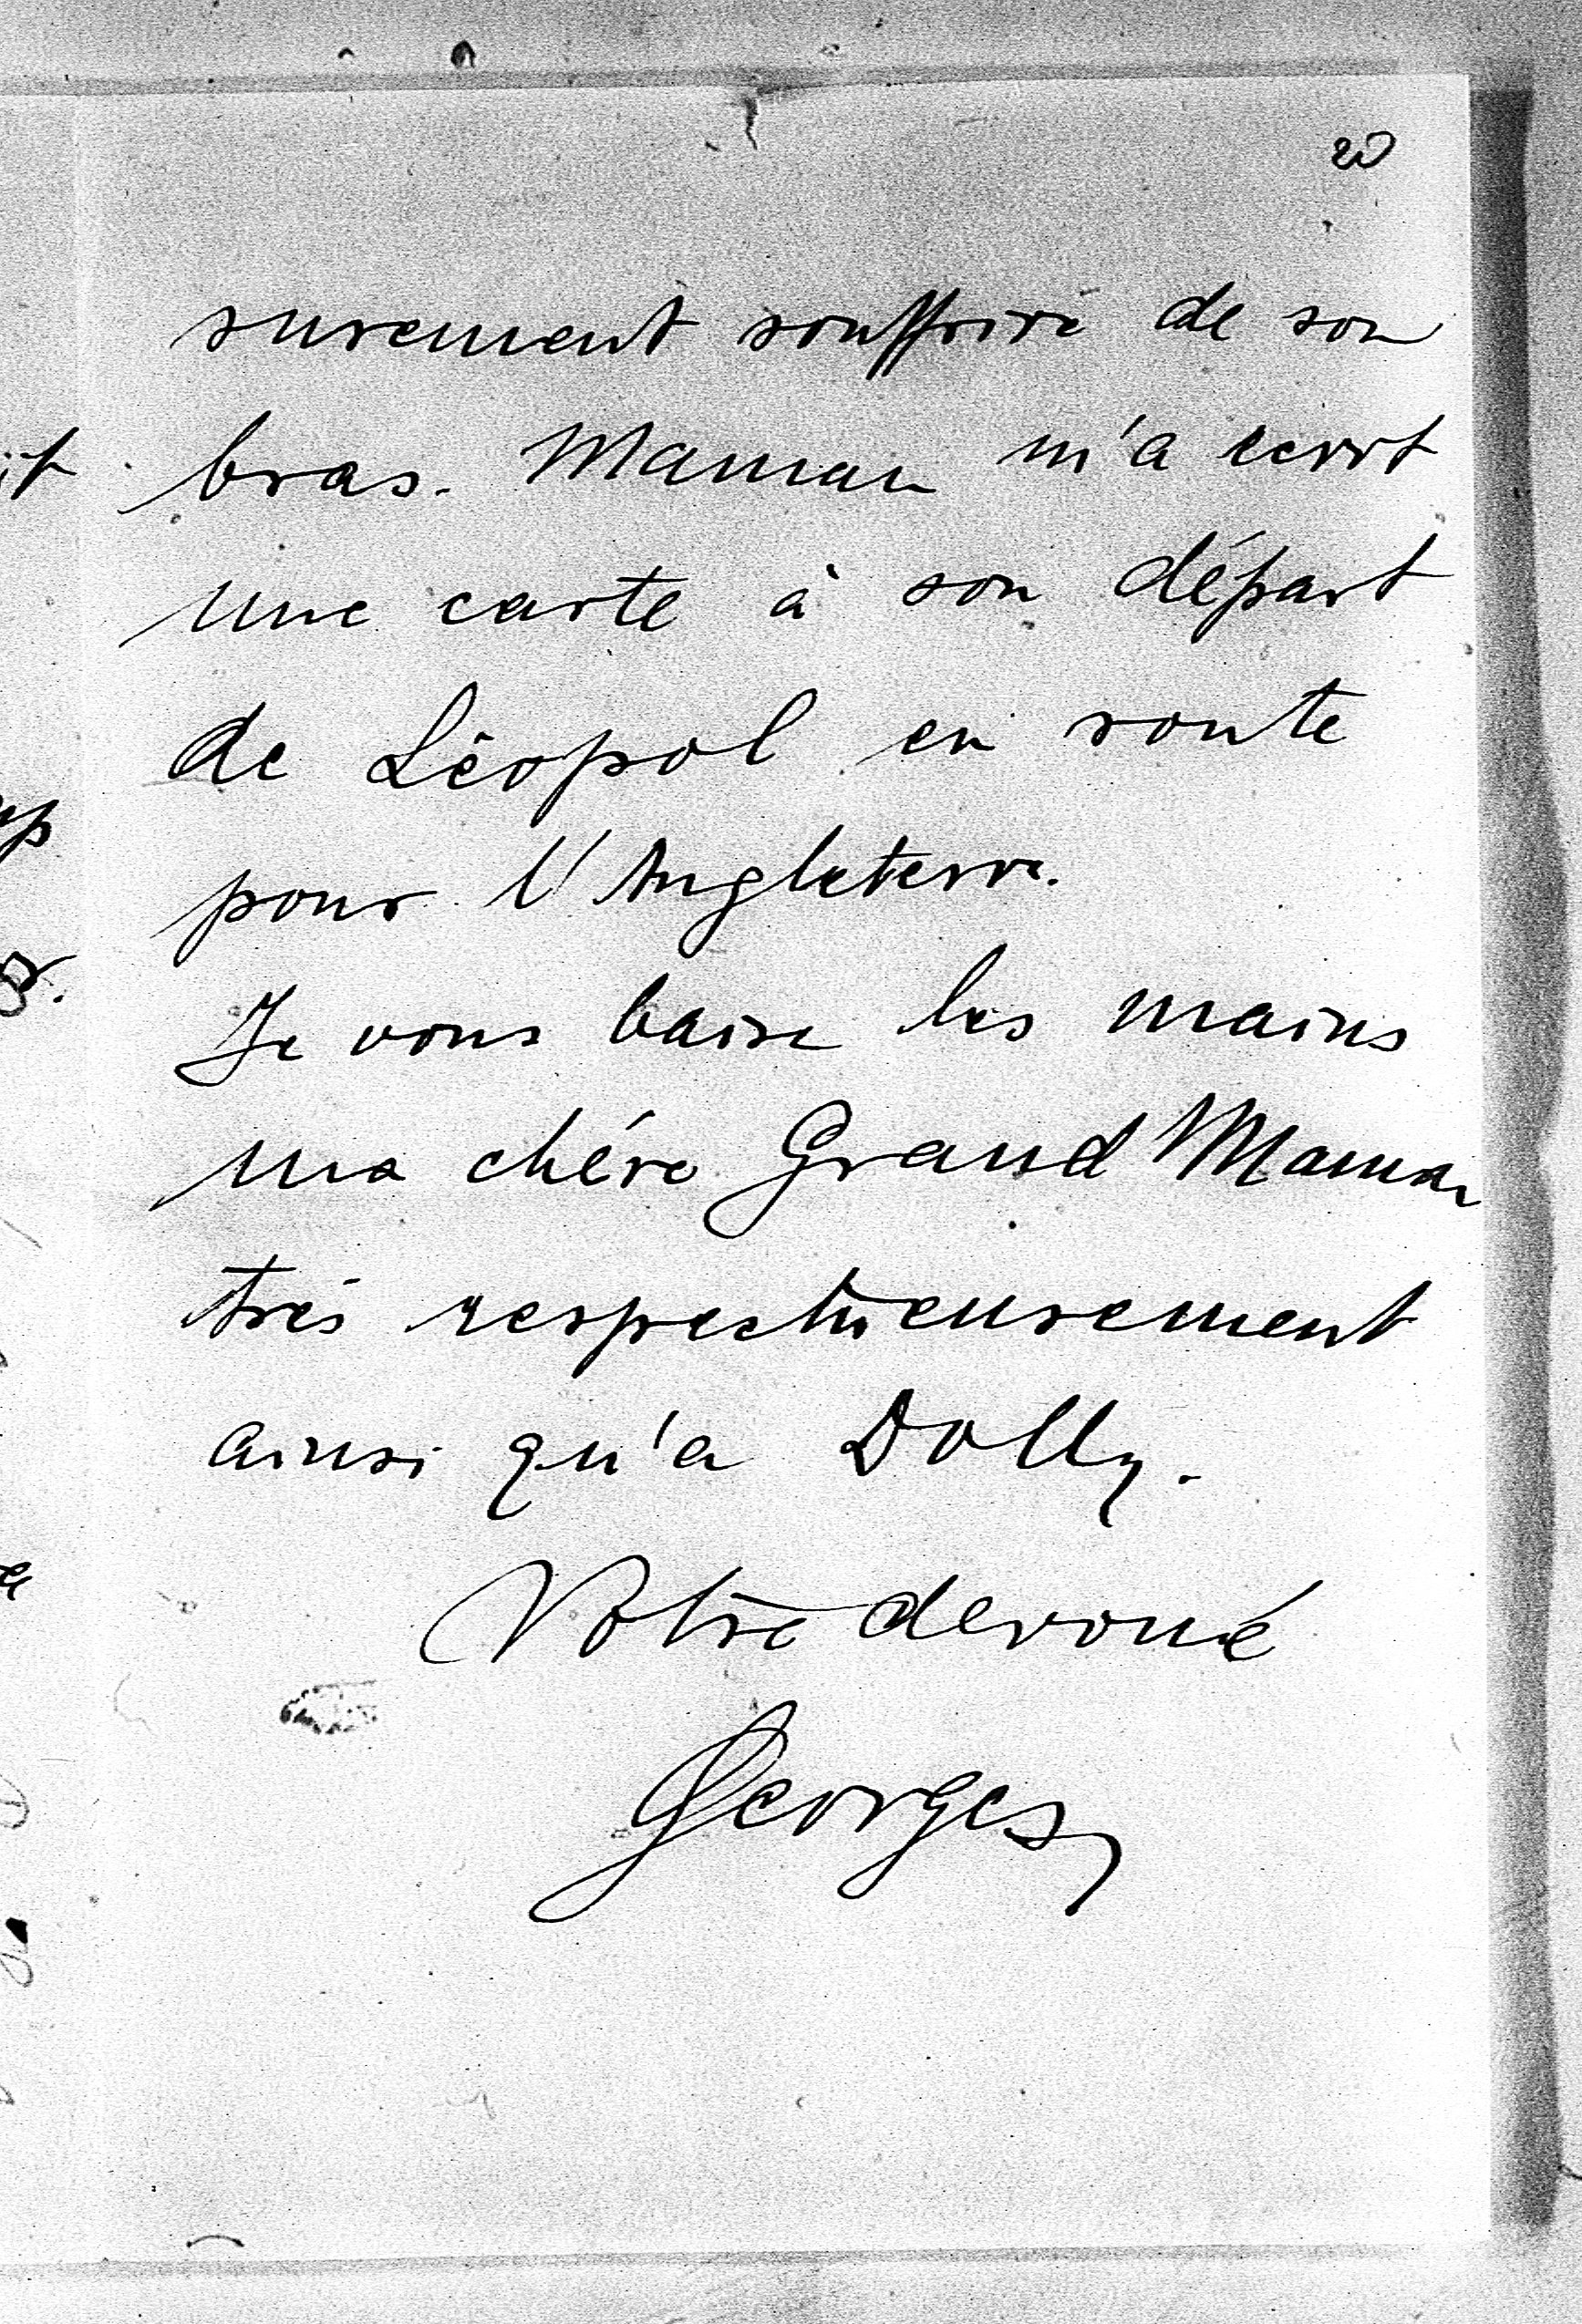 20
surement souffrire de son
bras. Maman m'a ecrit
une carte à son départ
de Léopol en route
pour l'Angleterre.
Je vous baise les mains
ma chére Grand Maman
trés respectueusement
ainsi qu'a Dolly.
Votre devoué
Georges